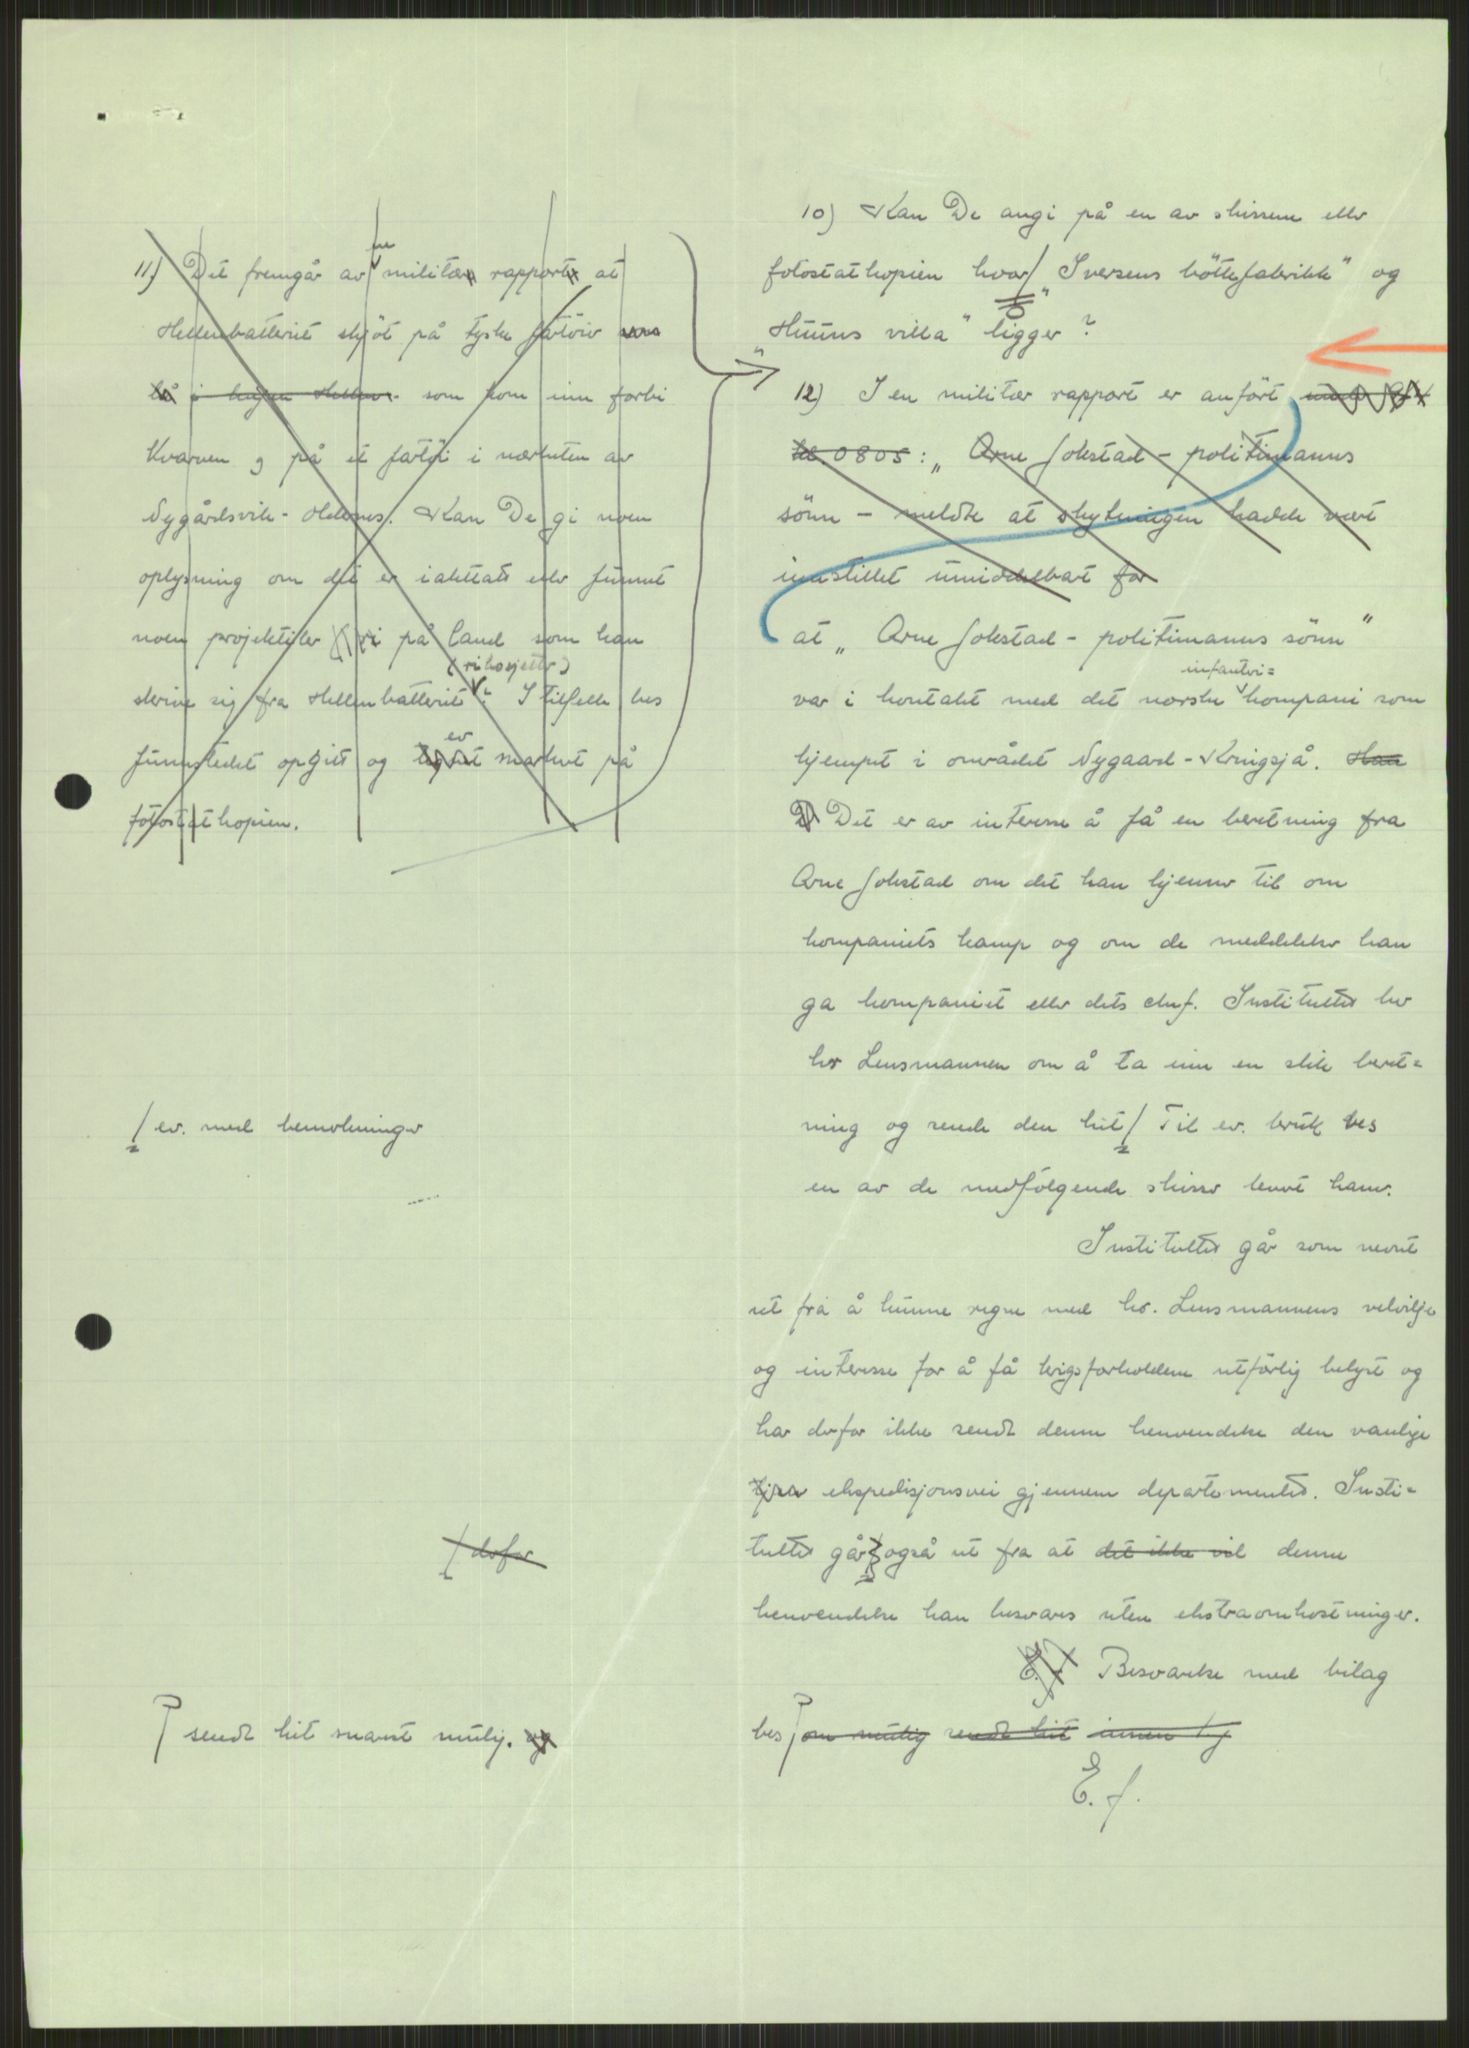 10) Kan De angi på en av skissene eller
fotostatkopien hvor/ "Iversens bøttefabrikk" og
"Huuns villa" ligger?
11) Det fremgår av militær rapport at
Hellenbatteriet skjöt på tyske fartöier
som kom inn forbi
Kvarven og på et fartöi i nærheten av
Nygårdsvik - Holenes. Kan De gi noen
oplysning om det er iakttatt eller funnet
noen projektiler på land som kan
(rikosjetter)
skrive sig fra Hellenbatteriet? I tilfelle bes
funnstedet opgitt og ev markert på
fotostatkopien.
12) I en militær rapport er anfört
kl. 0805: "Arne Jokstad - politimanns
sönn - meldte at skytningen hadde vært
innstillet umiddelbart før
at "Arne Jokstad - politimanns sönn"
infanteri=
var i kontakt med det norske kompani som
kjempet i området Nygaard - Kringsjå. Han
Det er av interesse å få en beretning fra
Arne Jokstad om det han kjenner til om
kompaniets kamp og om de meddelelser han
ga kompaniet eller dets chef. Instituttet ber
hr Lensmannen om å ta inn en slik beret=
ning og sende den hit/ Til ev. bruk bes
/ ev. med bemerkninger
en av de medfølgende skisser levert ham.
Instituttet går som nevnt
ut fra å kunne regne med hr. Lensmannens velvilje
og interesse for å få krigsforholdene utförlig belyst og
har derfor ikke sendt denne henvendelse den vanlige
ekspedisjonsvei gjennem departementet. Insti=
tuttet går også ut fra at det ikke vil denne
/ derfor
henvendelse kan besvares uten ekstraomkostninger.
E.f. Besvarelse med bilag
bes om mulig sendt hit innen
sendt hit snarest mulig. og
E. f.